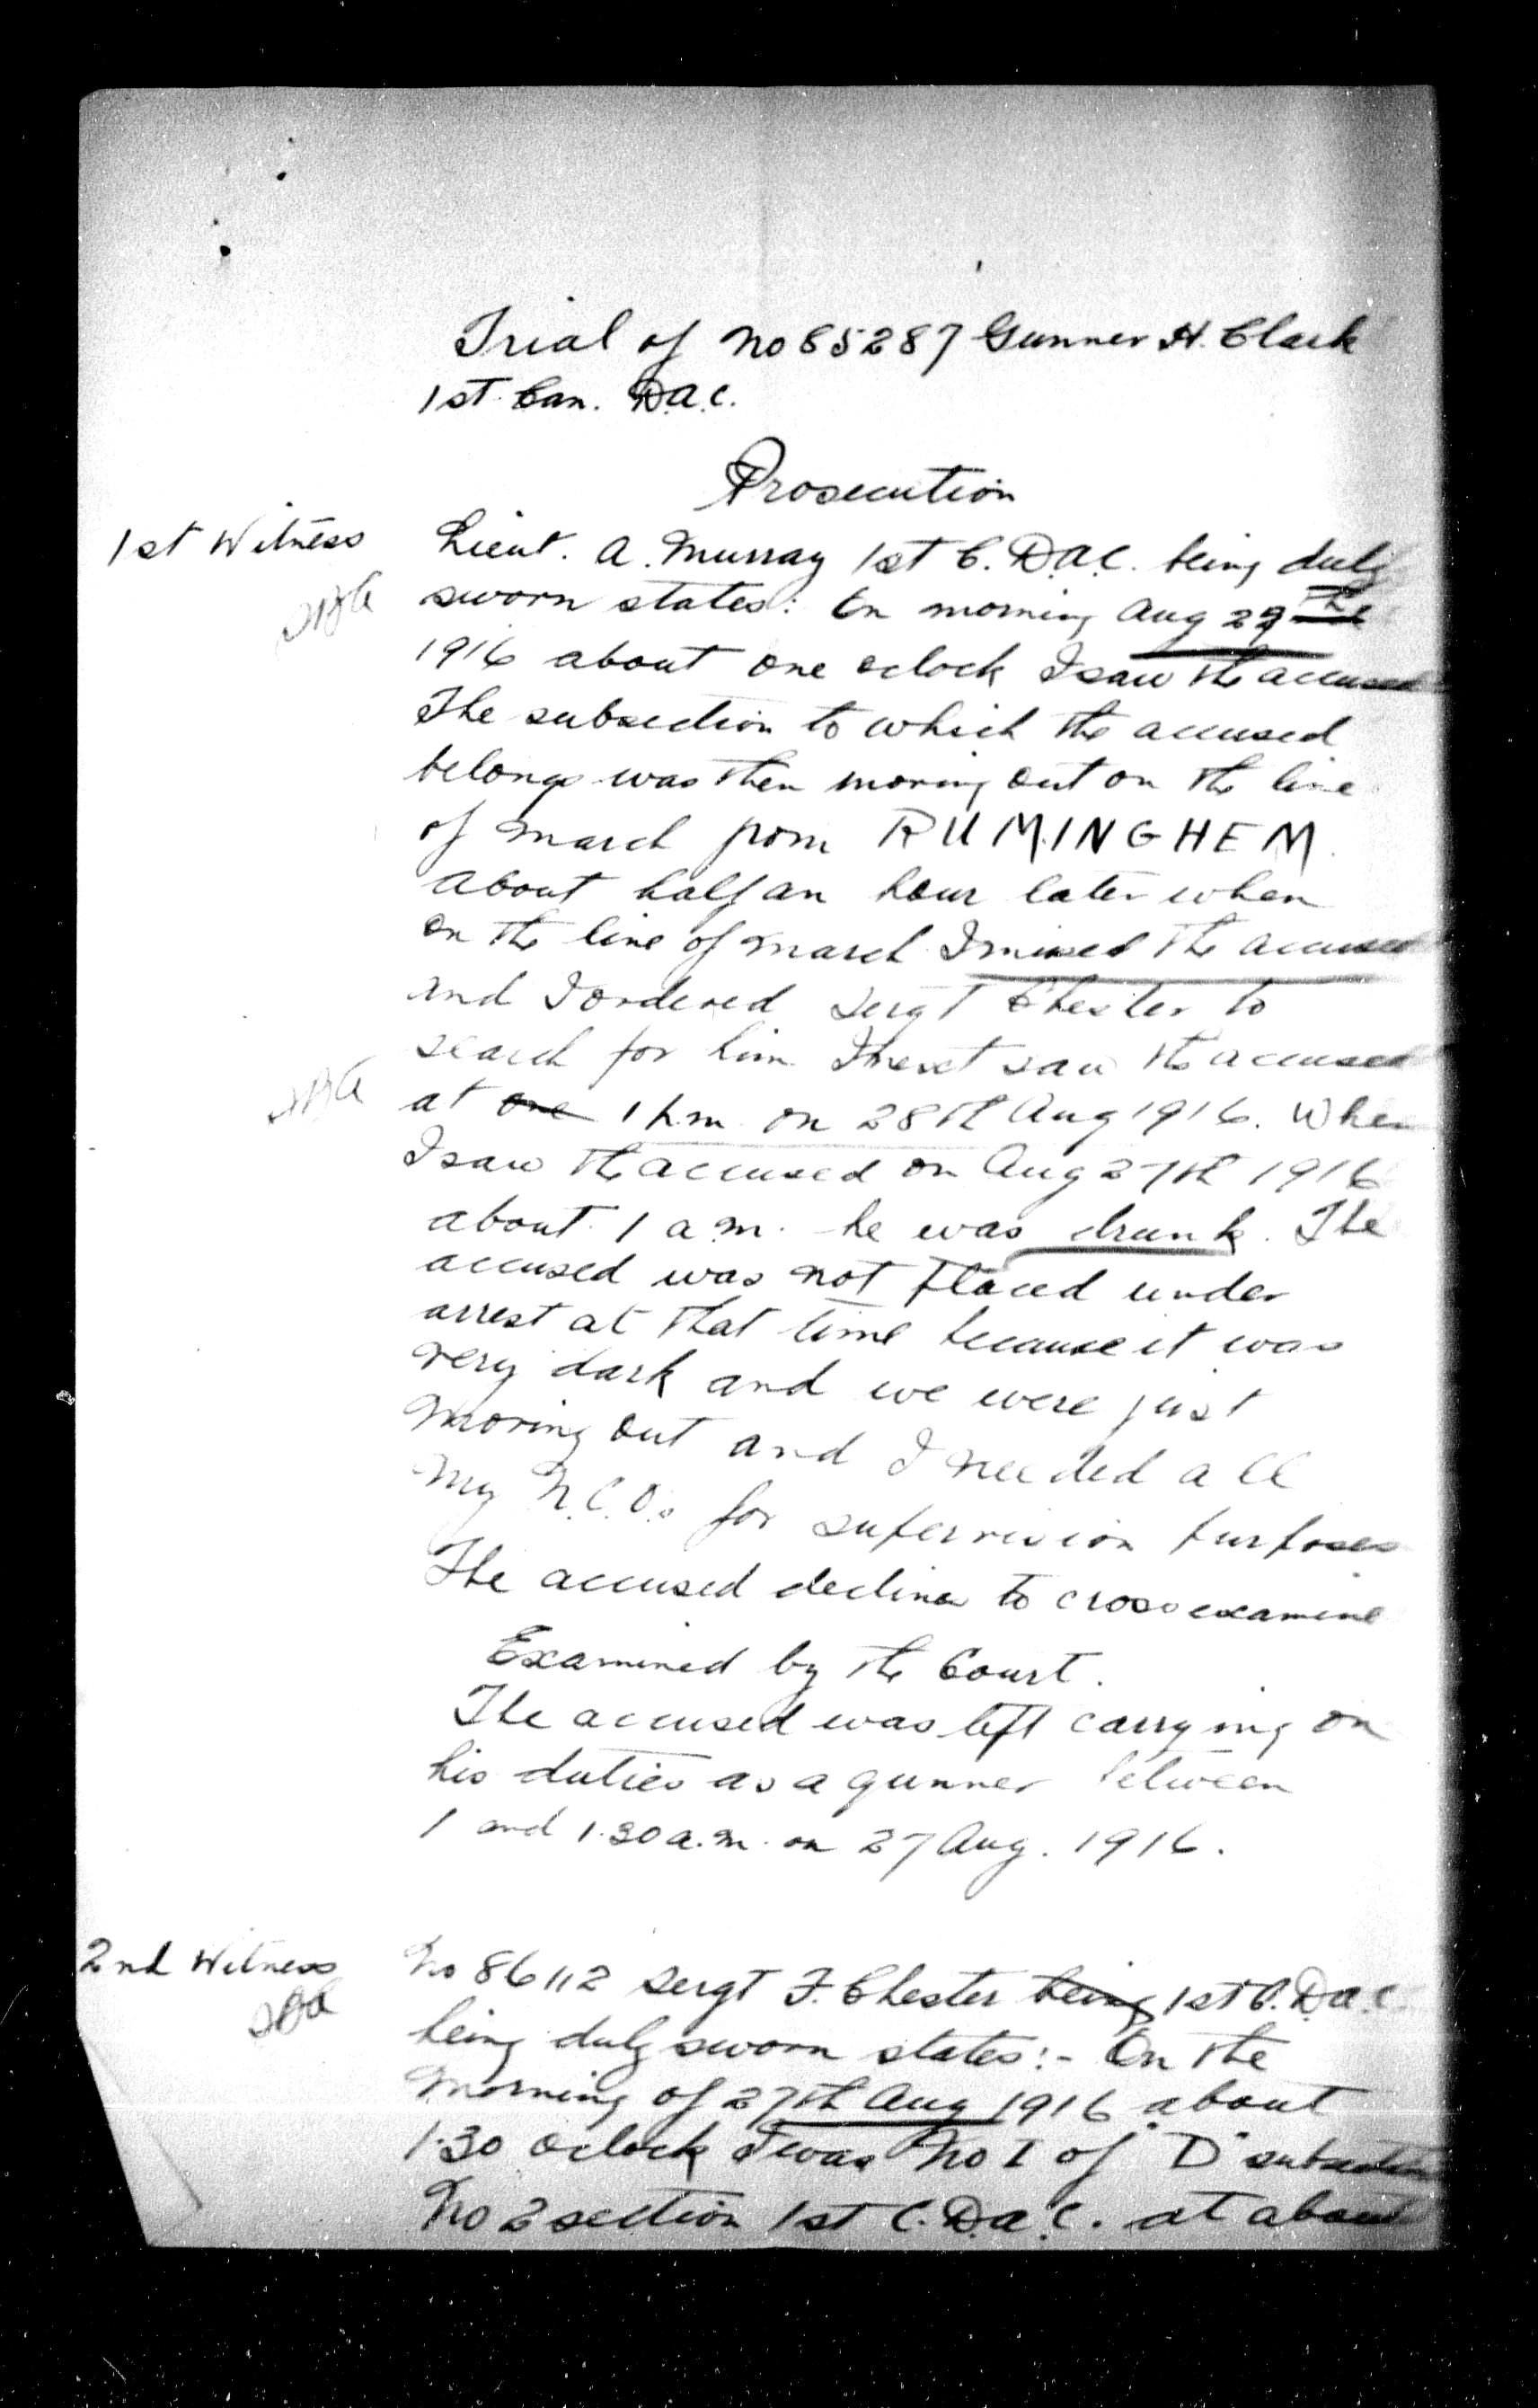 Trial of No 85287 Gunner H. Clark
1st Can. D.A.C.
Prosecution
1st Witness
Lieut. A. Murray 1st C. D.A.C. being duly
sworn states: On morning Aug 27th
1916 about one oclock I saw the accused
The subsection to which the accused
belongs was then moving out on the line
of march from RUMINGHEM.
About half an hour later when
on the line of march I missed the accused
and I ordered Sergt Chester to
search for him. I next saw the accused
at one 1 p.m. on 28th Aug 1916. When
I saw the accused on Aug 27th 1916
about 1 a.m. he was drunk. The
accused was not placed under
arrest at that time because it was
very dark and we were just
moving out and I needed all
my N.C.O.s for supervision purposes
The accused declines to cross examine
Examined by the Court.
The accused was left carrying on
his duties as a gunner between
1 and 1.30 a.m. on 27 Aug. 1916.
2nd Witness
No 86112 Sergt F. Chester being 1st C. D.A.C.
being duly sworn states:- On the
morning of 27th Aug 1916 about
1.30 oclock I was No I of "D" subsection
No 2 section 1st C. D.A.C. at about